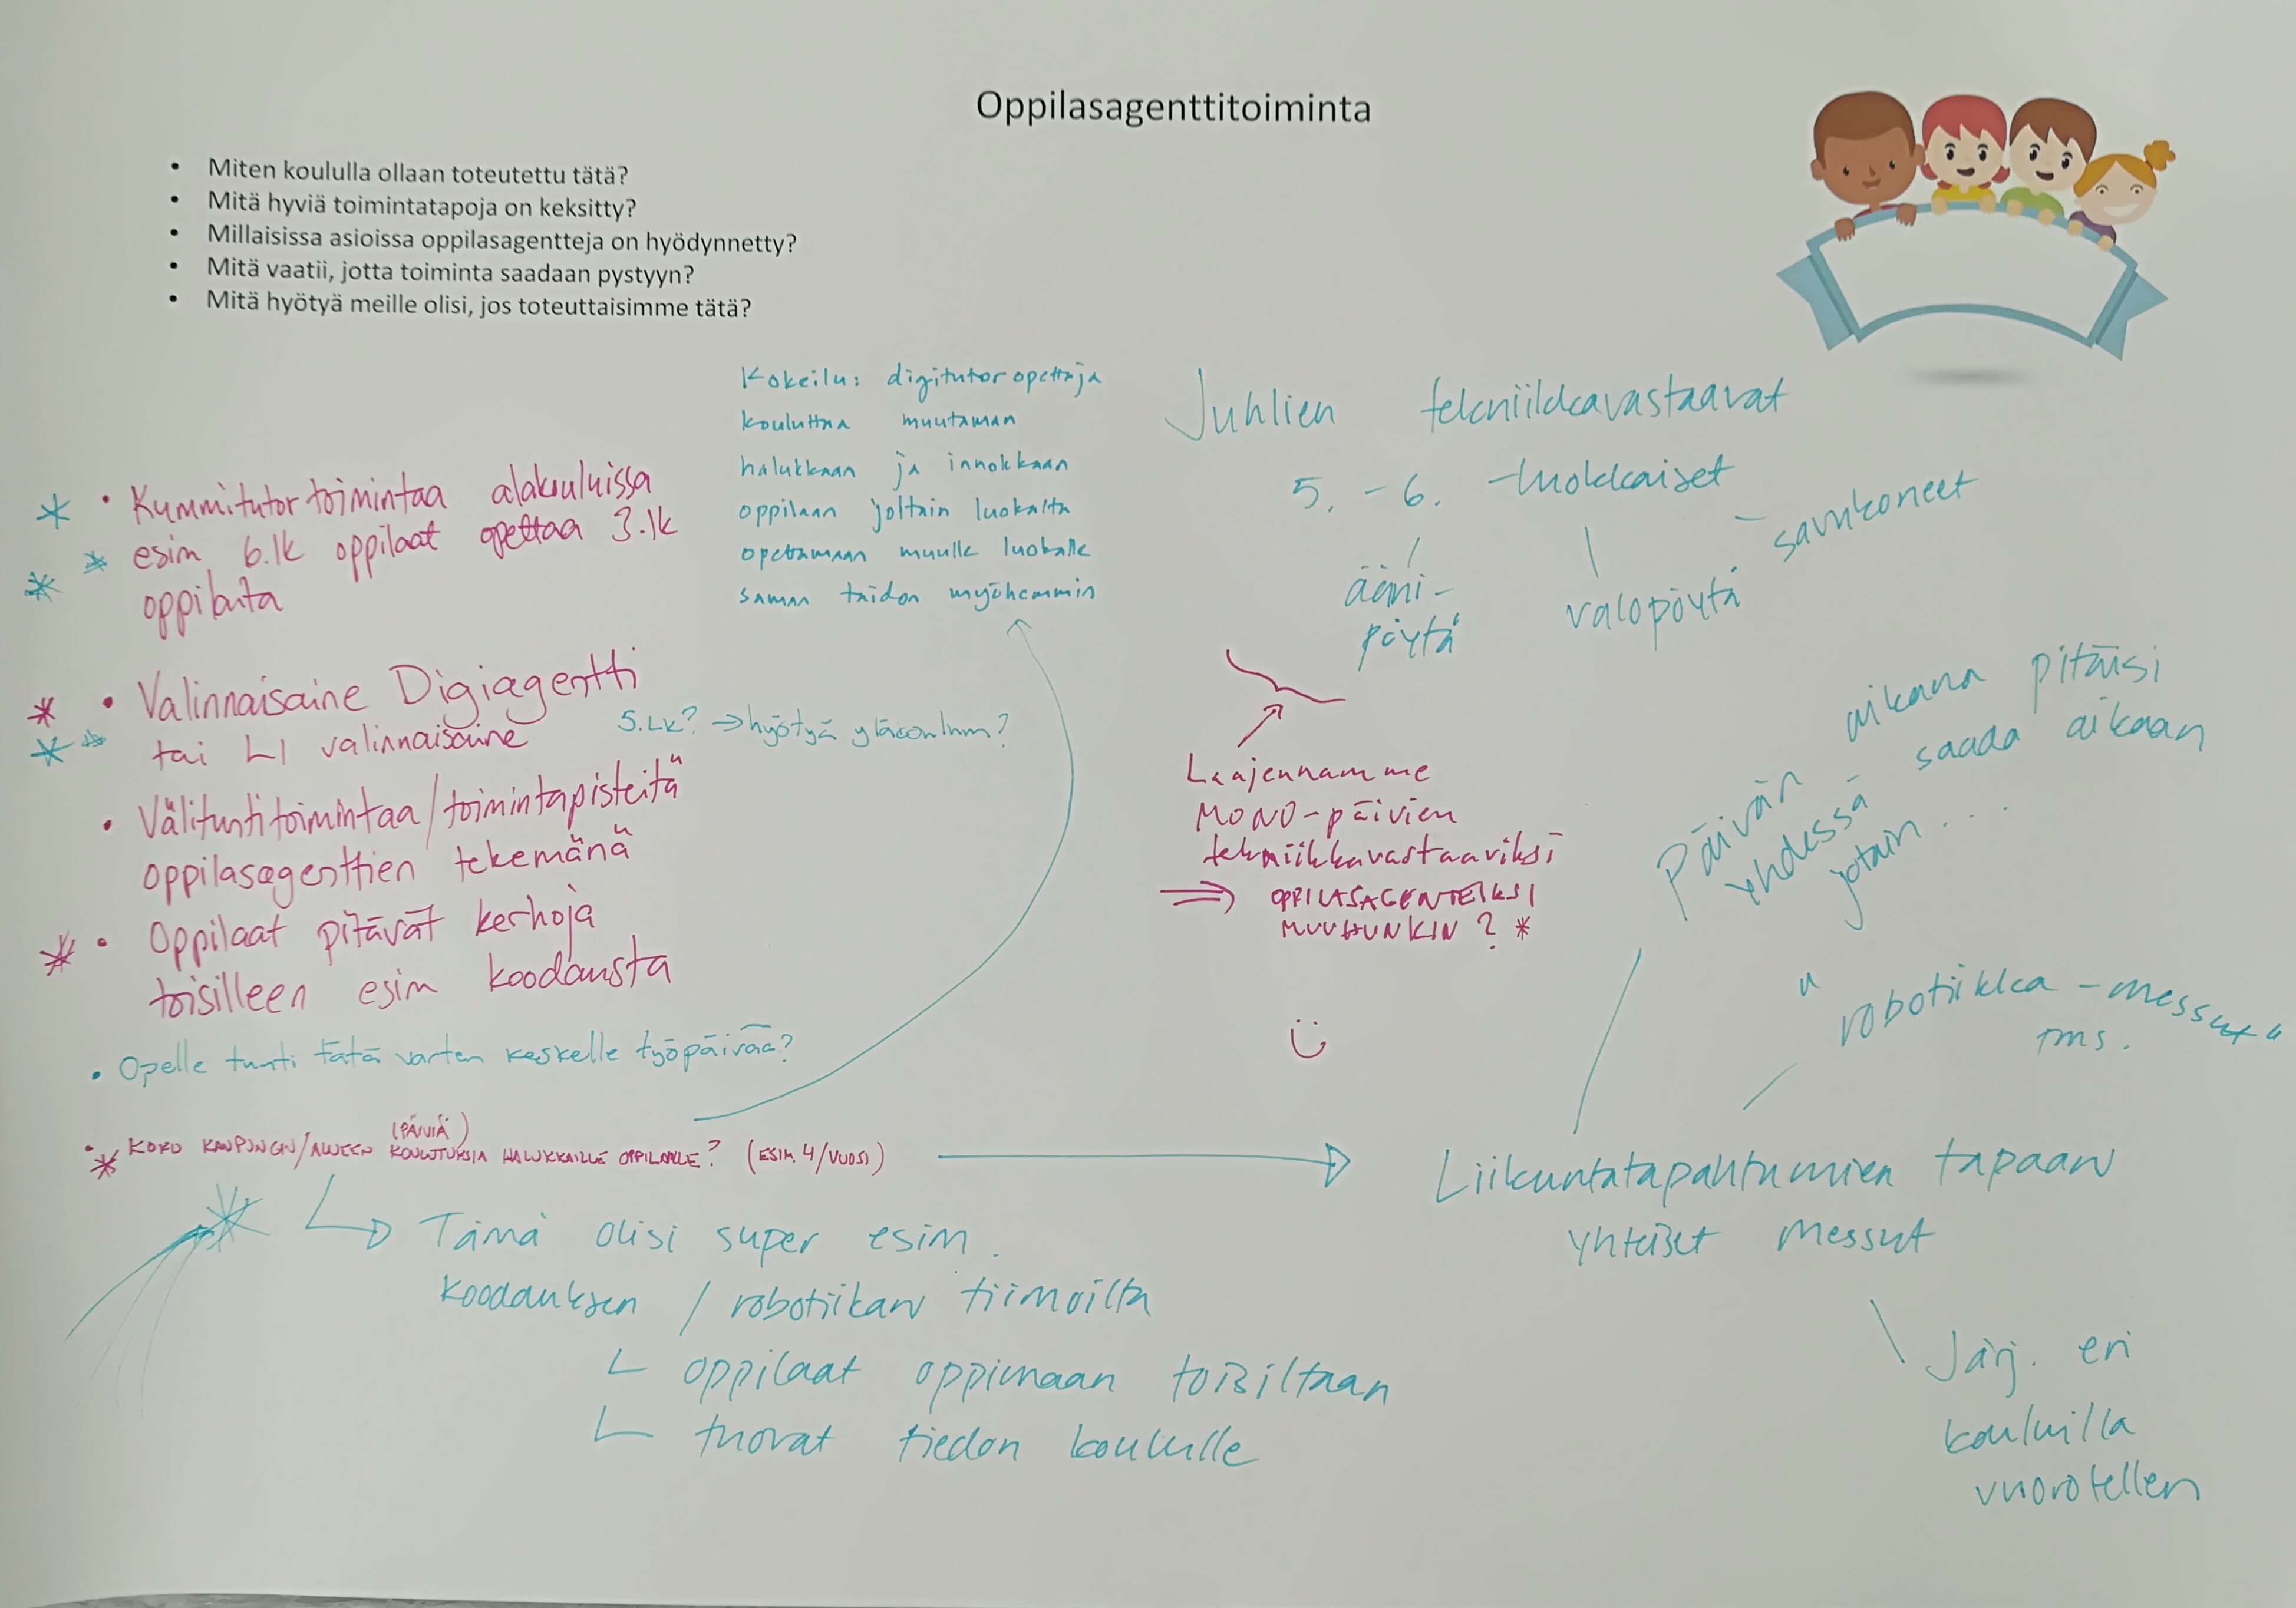 Oppilasagenttitoiminta
• Miten koululla ollaan toteutettu tätä?
• Mitä hyviä toimintatapoja on keksitty?
• Millaisissa asioissa oppilasagentteja on hyödynnetty?
• Mitä vaatii, jotta toiminta saadaan pystyyn?
• Mitä hyötyä meille olisi, jos toteuttaisimme tätä?
Kokeilu: digitutoropettaja
kouluttaa muutaman
halukkaan ja innokkaan
oppilaan joltain luokalta
opettamaan muulle luokalle
saman taidon myöhemmin
Juhlien tekniikkavastaavat
5. - 6. -luokkaiset
ääni-
pöytä
valopöytä
savukoneet
* • Kummitutortoimintaa alakouluissa
* * esim 6.lk oppilaat opettaa 3.lk
oppilaita
* • Valinnaisaine Digiagentti
* tai LI valinnaisaine
5.LK? → hyötyä yläkouluun?
• Välituntitoimintaa/toimintapisteitä
oppilasagenttien tekemänä
* • Oppilaat pitävät kerhoja
toisilleen esim koodausta
• Opelle tunti tätä varten keskelle työpäivää?
(PÄIVIÄ)
* KOKO KAUPUNGIN/ALUEEN KOULUTUKSIA HALUKKAILLE OPPILAILLE? (ESIM. 4/VUOSI)
Tämä olisi super esim.
koodauksen / robotiikan tiimoilta
oppilaat oppimaan toisiltaan
tuovat tiedon koululle
Laajennamme
MONO-päivien
tekniikkavastaaviksi
⇒ OPPILASAGENTEIKSI
MUUHUNKIN? *
Päivän aikana pitäisi
yhdessä saada aikaan
jotain . . .
" robotiikka - messut"
tms.
Liikuntatapahtumien tapaan
yhteiset messut
Järj. eri
kouluilla
vuorotellen